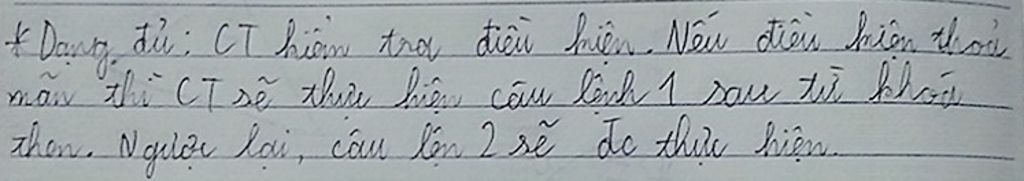 * Dạng đủ: CT kiểm tra điều kiện. Nếu điều kiện thoả
mãn thì CT sẽ thực hiện câu lệnh 1 sau từ khoá
then. Ngược lại, câu lện 2 sẽ đc thực hiện.